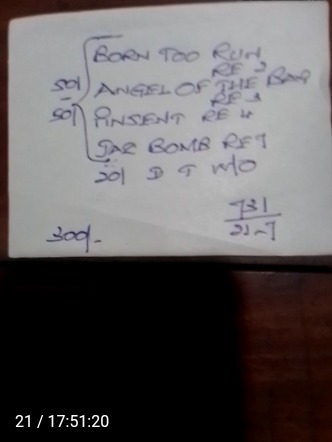 BORN TOO RUN
RE 2
50/ ANGEL OF THE BAR
RE 3
50/ PINSENT RE 4
JAZ BOMB RE 7
20/ D T W/O
731
300/- 21-7
21 / 17:51:20